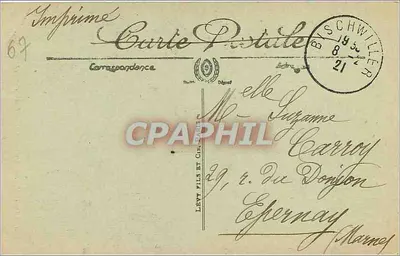 Imprimé
67
Carte Postale
Correspondance
Adresse
BISCHWILLER
19 30
8 - 2
21
CPAPHIL
LEVY FILS ET Cie, PARIS
Melle Suzanne
Carroy
29, r. du Donjon
Epernay
(Marne)